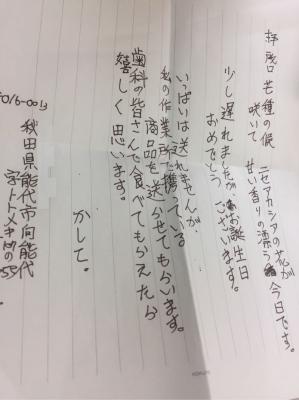 拝啓 芒種の候
咲いて ニセアカシアの花が
甘い香りの漂う 今日です。
少し遅れましたが、お誕生日
おめでとう ございます。
いっぱいは送れませんが、
私の作業所で携っている
商品を送らせてもらいます。
歯科の皆さんで食べてもらえたら
嬉しく思います。
かして。
016-0013
秋田県能代市向能代
字トトメキ